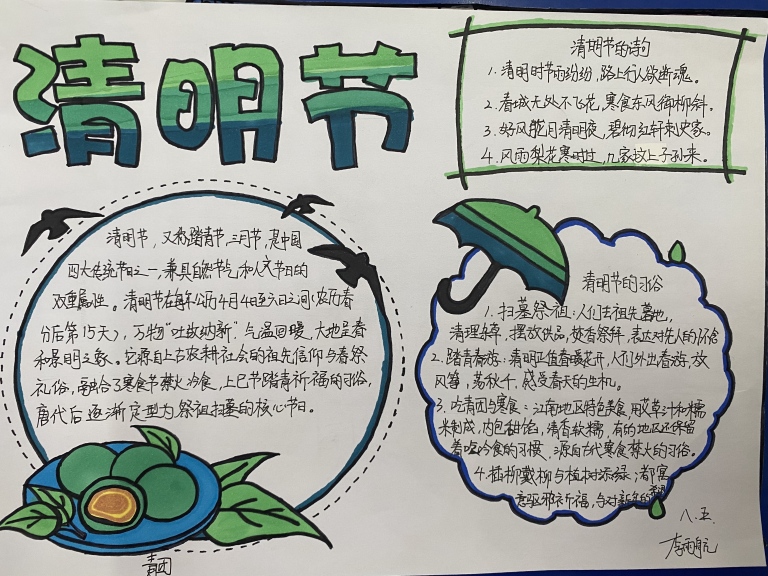 清明节
清明节的诗句
1. 清明时节雨纷纷，路上行人欲断魂。
2. 春城无处不飞花，寒食东风御柳斜。
3. 好风胧月清明夜，碧砌红轩刺史家。
4. 风雨梨花寒食过，几家坟上子孙来。
清明节，又称踏青节，三月节，是中国
四大传统节日之一，兼具自然节气和人文节日的
双重属性。清明节在每年公历4月4日至六日之间（农历春
分后第15天），万物“吐故纳新”，气温回暖，大地呈春
和景明之象。它源自上古农耕社会的祖先信仰与春祭
礼俗，融合了寒食节禁火冷食，上巳节踏青祈福的习俗，
唐代后逐渐定型为祭祖扫墓的核心节日。
青团
清明节的习俗
1. 扫墓祭祖：人们去祖先墓地，
清理杂草，摆放供品，焚香祭拜，表达对先人的怀念
2. 踏青春游：清明正值春暖花开，人们外出春游，放
风筝，荡秋千，感受春天的生机。
3. 吃青团与寒食：江南地区特色美食，用艾草汁和糯
米制成，内包甜馅，清香软糯，有的地区还保留
着吃冷食的习惯，源自古代寒食禁火的习俗。
4. 插柳戴柳与植树添绿：都寓
意驱邪祈福，与对新生的
八.五.
李雨航